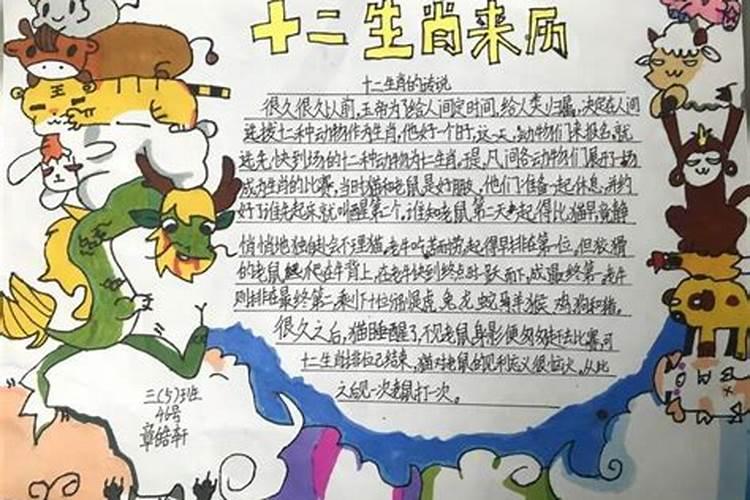 十二生肖来历
十二生肖的传说
很久很久以前,玉帝为了给人间定时间,给人类归属,决定在人间
选择十二种动物作为生肖,他好一个时,这一天,动物们来报名,就
选先快到场的十二种动物为十二生肖,于是,凡间各动物们展开了一场
成为生肖的比赛,当时猫和老鼠是好朋友,他们准备一起休息,并约
好了谁先起床就叫醒第二个,谁知老鼠第二天起得比猫早,竟静
悄悄地独自赴会不理猫,老牛吃苦耐劳,起得早排在第一位,但狡猾
的老鼠爬在牛背上,在老牛快到终点时一跃而下,成最终第一,老牛
则排在最终第二,剩下十位强虎,兔,龙,蛇,马,羊,猴,鸡,狗和猪。
很久之后,猫睡醒了,不见老鼠身影便匆匆赶去比赛,可
十二生肖排位已结束,猫对老鼠的见利忘义很恼火,从此
之后见一次老鼠打一次。
三(5)班
46号
章皓轩